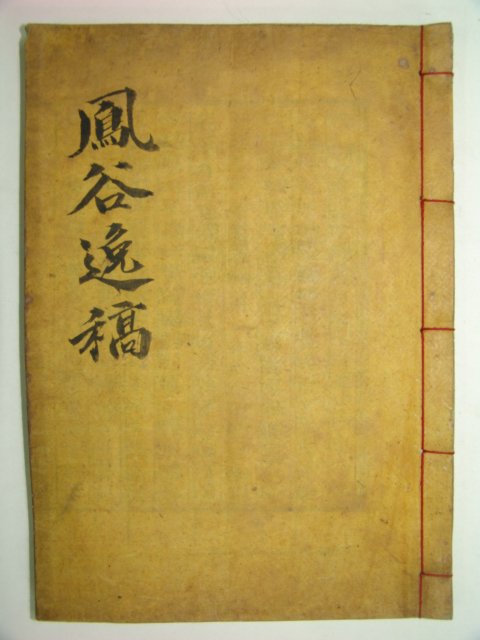 鳳谷逸稿